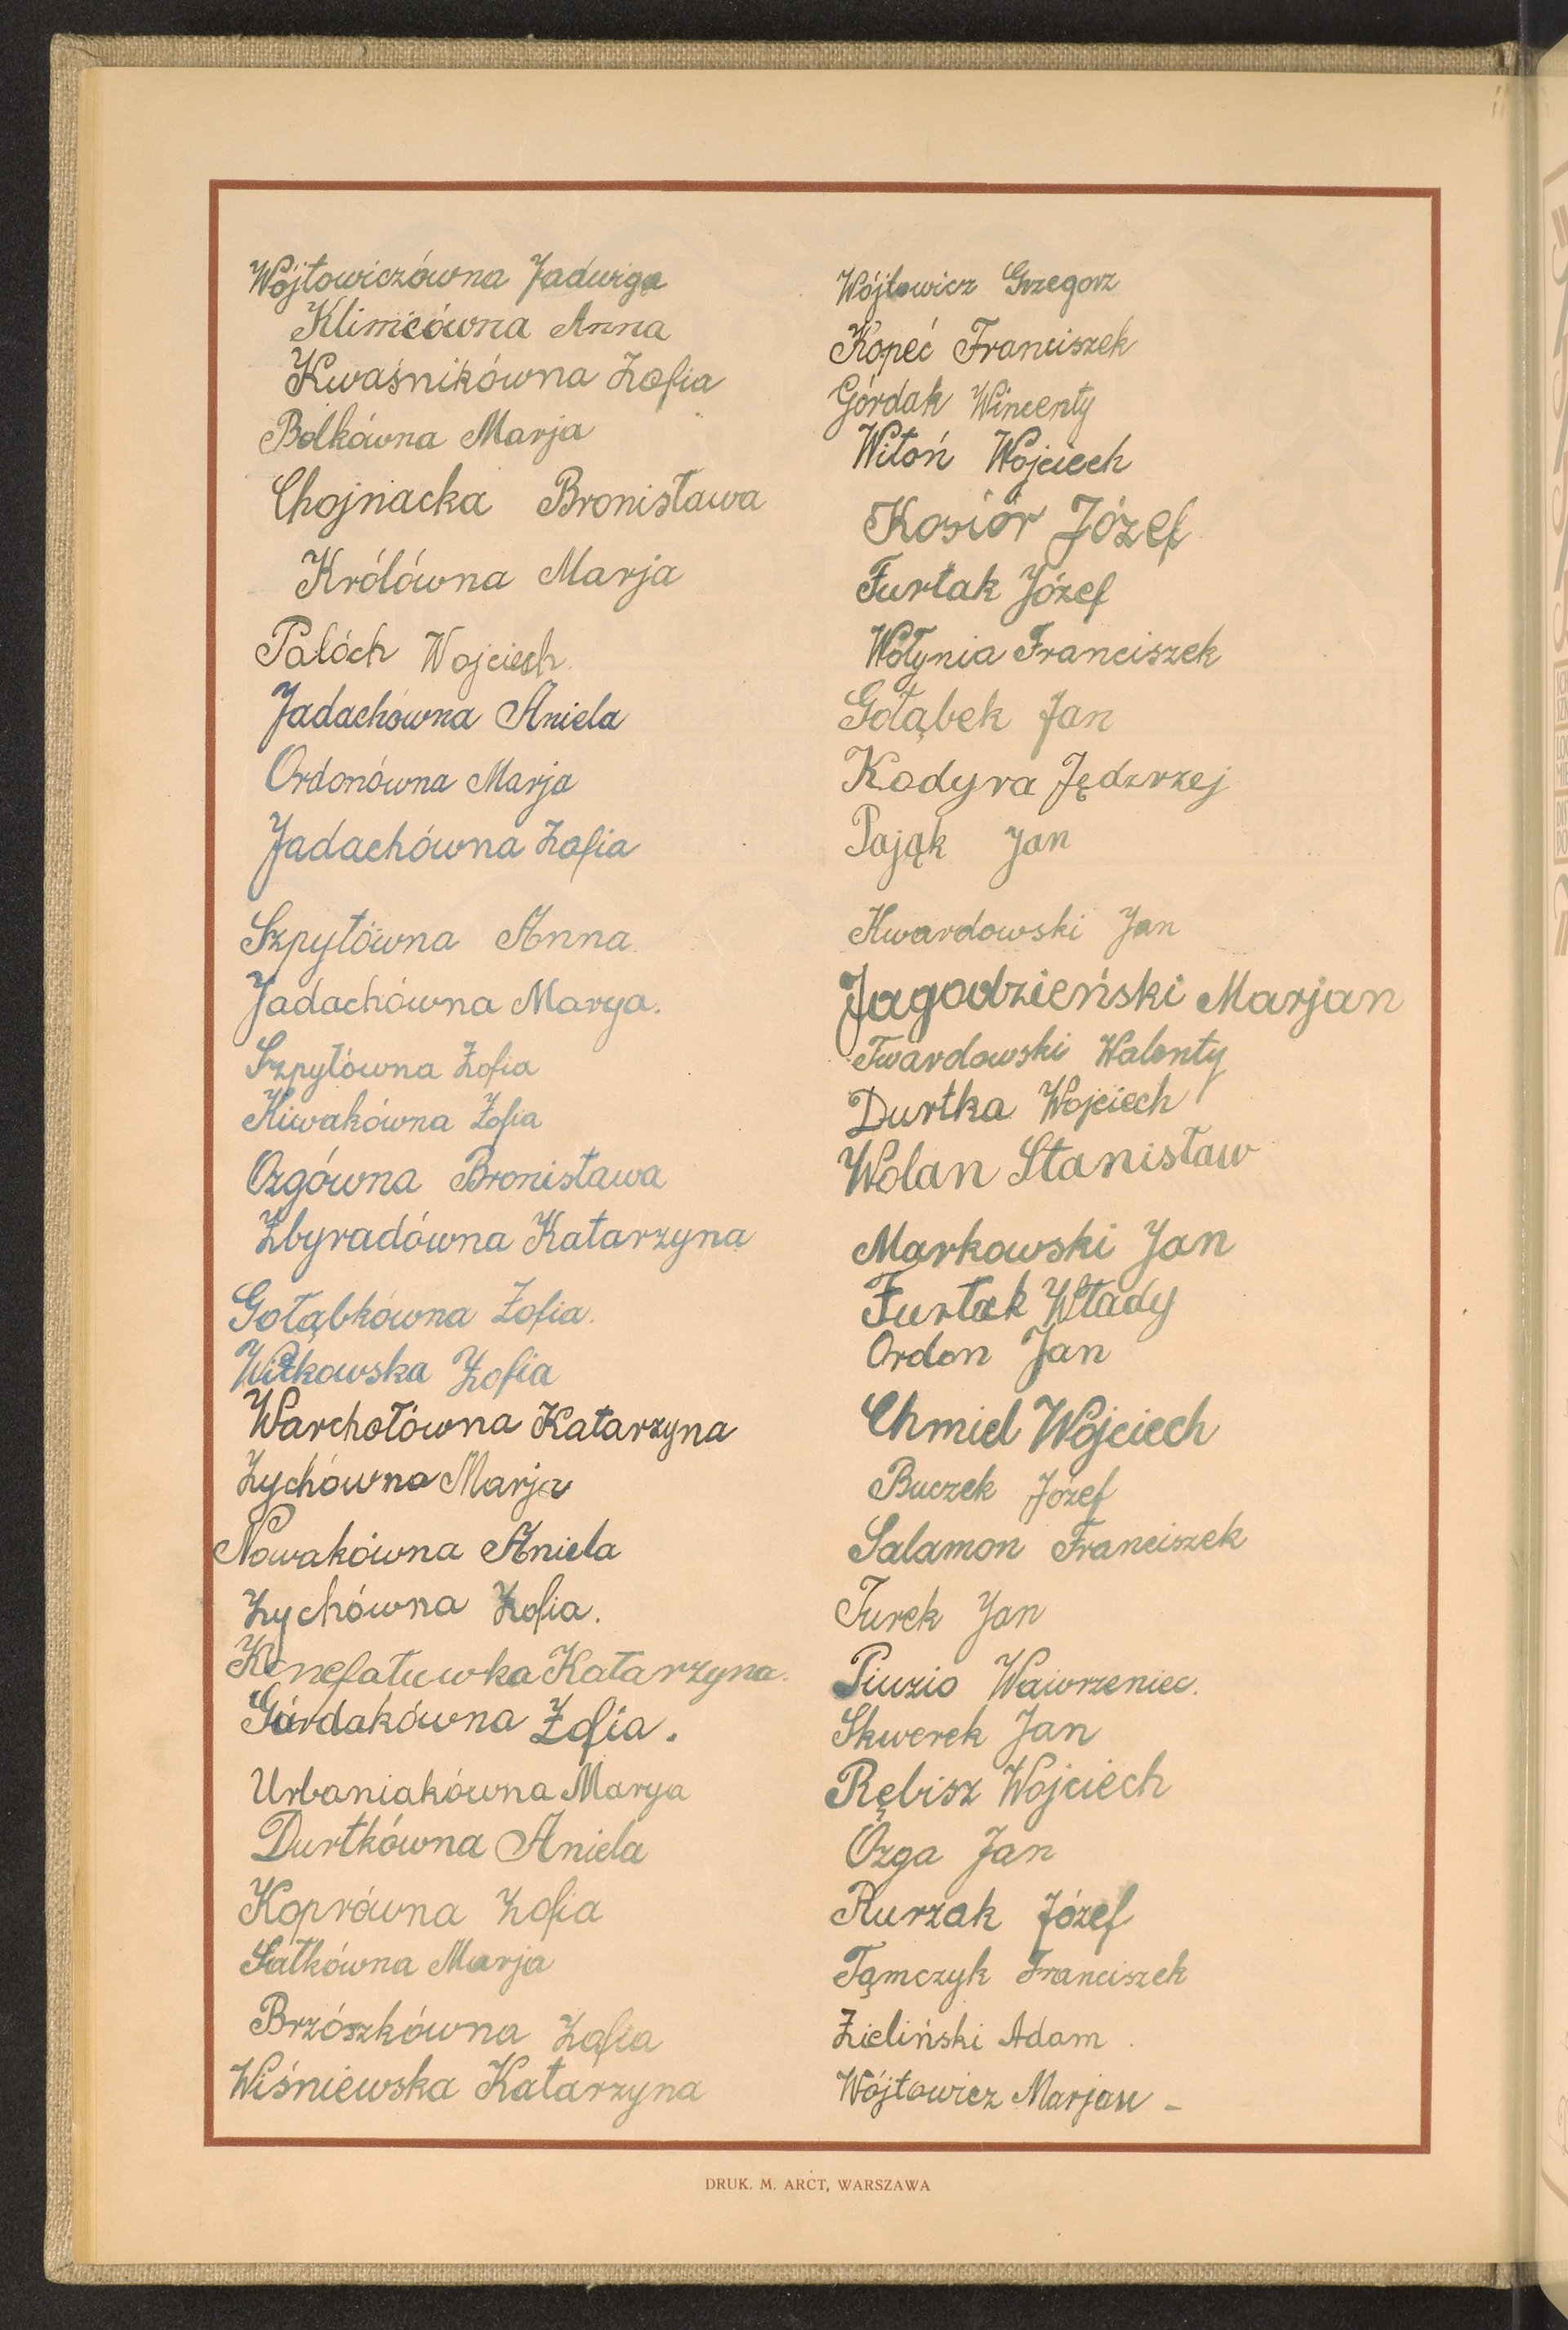 Wójtowiczówna Jadwiga
Klimcówna Anna
Kwaśnikówna Zofia
Bolkówna Marja
Chojnacka Bronisława
Królówna Marja
Palóch Wojciech.
Jadachówna Aniela
Ordonówna Marja
Jadachówna Zofia
Szpytówna Anna
Jadachówna Marya.
Szpytówna Zofia
Kiwakówna Zofia
Ozgówna Bronisława
Zbyradówna Katarzyna
Gołąbkówna Zofia.
Witkowska Zofia
Warchołówna Katarzyna
Zychówna Marja
Nowakówna Aniela
Zychówna Zofia.
Kenefatuwka Katarzyna.
Górdakówna Zofia.
Urbaniakówna Marya
Durtkówna Aniela
Koprówna Zofia
Satkówna Marja
Brzószkówna Zofia
Wiśniewska Katarzyna
Wójtowicz Grzegorz
Kopeć Franciszek
Górdak Wincenty
Witoń Wojciech
Kosiór Józef
Furtak Józef
Wołynia Franciszek
Gołąbek Jan
Kodyra Jędzrzej
Pająk Jan
Kwardowski Jan
Jagodzieński Marjan
Twardowski Walenty
Durtka Wojciech
Wolan Stanisław
Markowski Jan
Furtak Włady
Ordon Jan
Chmiel Wojciech
Buczek Józef
Salamon Franciszek
Turek Jan
Piuzio Wawrzeniec.
Skwerek Jan
Rębisz Wojciech
Ozga Jan
Kurzak Józef
Tąmczyk Franciszek
Zieliński Adam
Wójtowicz Marjan -
DRUK. M. ARCT, WARSZAWA